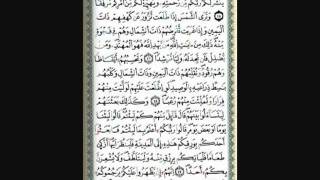 يَنشُرْ لَكُمْ رَبُّكُم مِّن رَّحْمَتِهِ وَيُهَيِّئْ لَكُم مِّنْ أَمْرِكُم مِّرْفَقًا
وَتَرَى الشَّمْسَ إِذَا طَلَعَت تَّزَاوَرُ عَن كَهْفِهِمْ ذَاتَ
الْيَمِينِ وَإِذَا غَرَبَت تَّقْرِضُهُمْ ذَاتَ الشِّمَالِ وَهُمْ فِي فَجْوَةٍ
مِّنْهُ ذَٰلِكَ مِنْ آيَاتِ اللَّهِ مَن يَهْدِ اللَّهُ فَهُوَ الْمُهْتَدِ وَمَن
يُضْلِلْ فَلَن تَجِدَ لَهُ وَلِيًّا مُّرْشِدًا ١٧ وَتَحْسَبُهُمْ أَيْقَاظًا
وَهُمْ رُقُودٌ وَنُقَلِّبُهُمْ ذَاتَ الْيَمِينِ وَذَاتَ الشِّمَالِ وَكَلْبُهُم
بَاسِطٌ ذِرَاعَيْهِ بِالْوَصِيدِ لَوِ اطَّلَعْتَ عَلَيْهِمْ لَوَلَّيْتَ مِنْهُمْ
فِرَارًا وَلَمُلِئْتَ مِنْهُمْ رُعْبًا ١٨ وَكَذَٰلِكَ بَعَثْنَاهُمْ
لِيَتَسَاءَلُوا بَيْنَهُمْ قَالَ قَائِلٌ مِّنْهُمْ كَمْ لَبِثْتُمْ قَالُوا لَبِثْنَا
يَوْمًا أَوْ بَعْضَ يَوْمٍ قَالُوا رَبُّكُمْ أَعْلَمُ بِمَا لَبِثْتُمْ فَابْعَثُوا
أَحَدَكُم بِوَرِقِكُمْ هَٰذِهِ إِلَى الْمَدِينَةِ فَلْيَنظُرْ أَيُّهَا أَزْكَىٰ
طَعَامًا فَلْيَأْتِكُم بِرِزْقٍ مِّنْهُ وَلْيَتَلَطَّفْ وَلَا يُشْعِرَنَّ
بِكُمْ أَحَدًا ١٩ إِنَّهُمْ إِن يَظْهَرُوا عَلَيْكُمْ يَرْجُمُوكُمْ